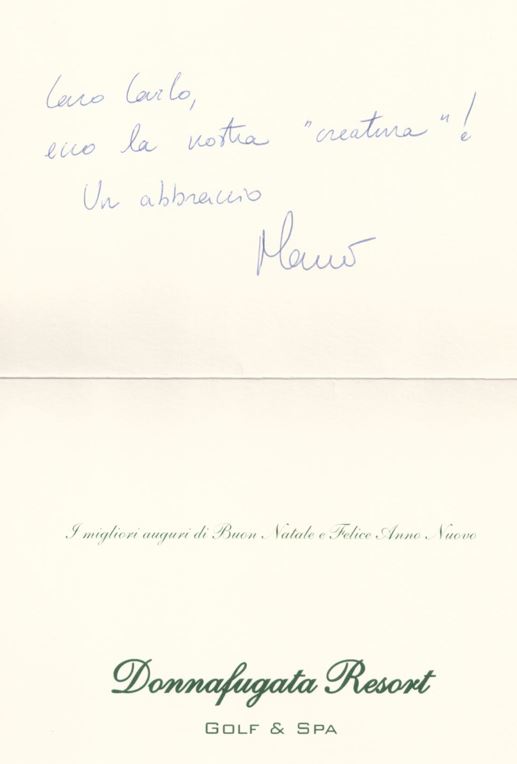 Caro Carlo,
ecco la nostra "creatura"!
Un abbraccio
I migliori auguri di Buon Natale e Felice Anno Nuovo
Donnafugata Resort
GOLF & SPA